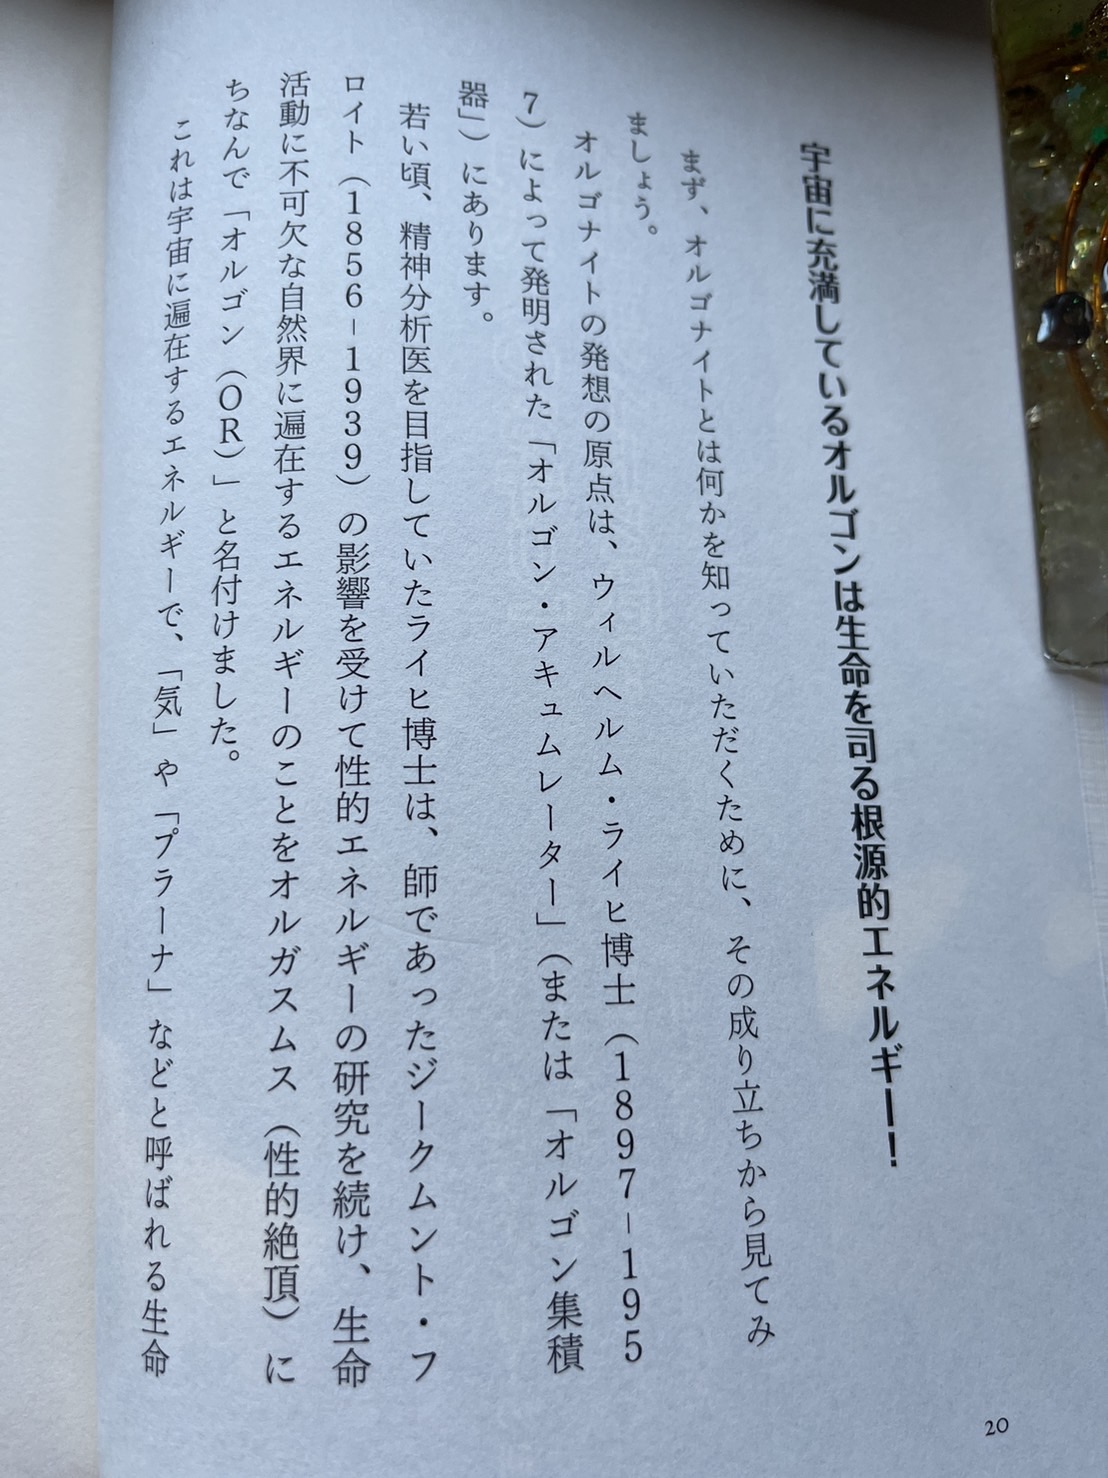 宇宙に充満しているオルゴンは生命を司る根源的エネルギー！
まず、オルゴナイトとは何かを知っていただくために、その成り立ちから見てみ
ましょう。
オルゴナイトの発想の原点は、ウィルヘルム・ライヒ博士（１８９７－１９５
７）によって発明された「オルゴン・アキュムレーター」（または「オルゴン集積
器」）にあります。
若い頃、精神分析医を目指していたライヒ博士は、師であったジークムント・フ
ロイト（１８５６－１９３９）の影響を受けて性的エネルギーの研究を続け、生命
活動に不可欠な自然界に遍在するエネルギーのことをオルガスムス（性的絶頂）に
ちなんで「オルゴン（ＯＲ）」と名付けました。
これは宇宙に遍在するエネルギーで、「気」や「プラーナ」などと呼ばれる生命
20